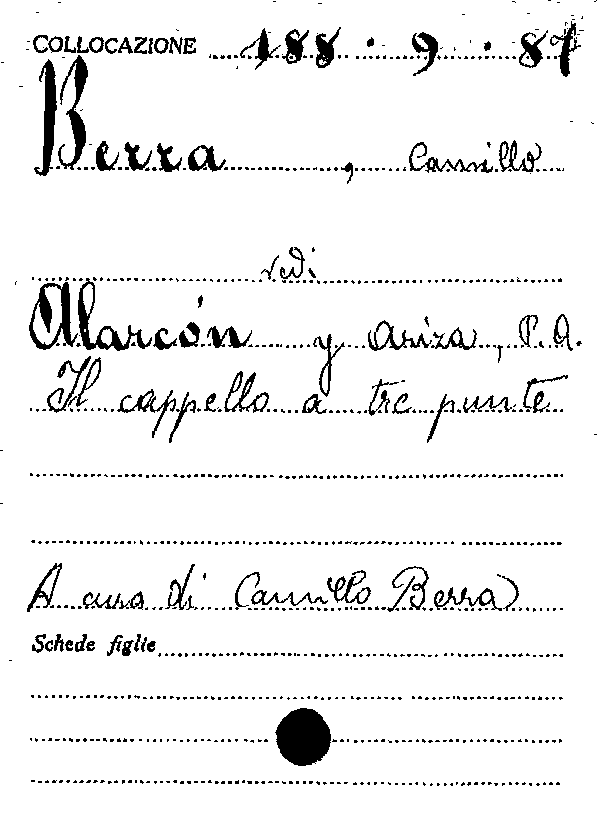 COLLOCAZIONE 188 . 9 . 87
Berra , Camillo
vedi
Alarcón y Ariza, P. A.
Il cappello a tre punte
A cura di Camillo Berra
Schede figlie